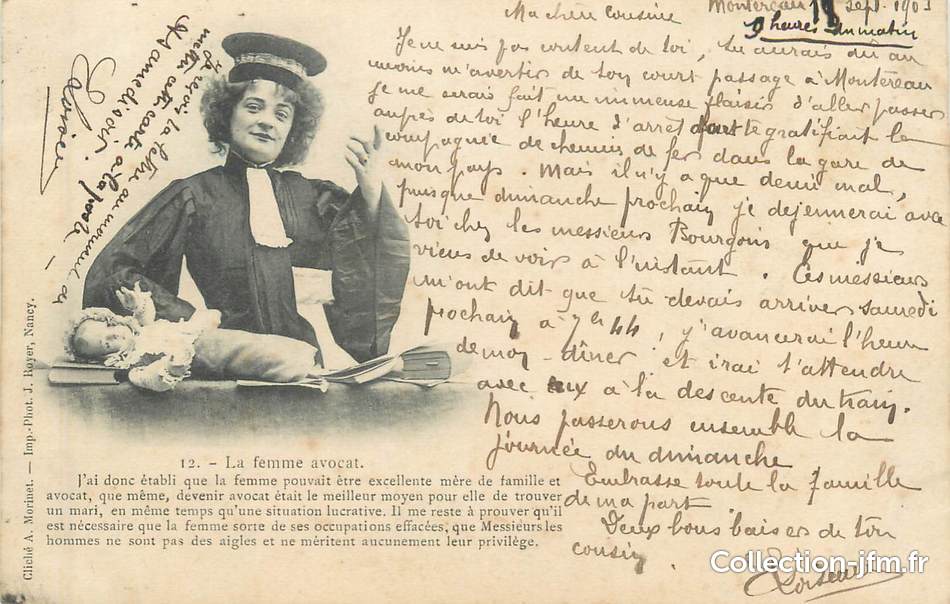 Montereau 18 Sept. 1903
9 heures du matin
Ma chère cousine
Je ne suis pas content de toi, tu aurais dû au
moins m'avertir de ton court passage à Montereau
je me serais fait un immense plaisir d'aller passer
auprès de toi l'heure d'arrêt dont te gratifiait la
compagnie de chemins de fer dans la gare de
mon pays. Mais il n'y a que demi mal,
puisque dimanche prochain je déjeunerai avec
toi chez les messieurs Bourgois que je
viens de voir à l'instant. Ces messieurs
m'ont dit que tu devais arriver samedi
prochain à 7h 44, j'avancerai l'heure
de mon dîner et irai t'attendre
avec eux à la descente du train.
Nous passerons ensemble la
journée du dimanche
Embrasse toute la famille
de ma part
Deux bons baisers de ton
cousin
Je reçois ta lettre au moment de
mettre cette carte à la poste
A samedi soir.
12. - La femme avocat.
J'ai donc établi que la femme pouvait être excellente mère de famille et
avocat, que même, devenir avocat était le meilleur moyen pour elle de trouver
un mari, en même temps qu'une situation lucrative. Il me reste à prouver qu'il
est nécessaire que la femme sorte de ses occupations effacées, que Messieurs les
hommes ne sont pas des aigles et ne méritent aucunement leur privilège.
Cliché A. Morinet. — Imp.-Phot. J. Royer, Nancy.
Collection-jfm.fr